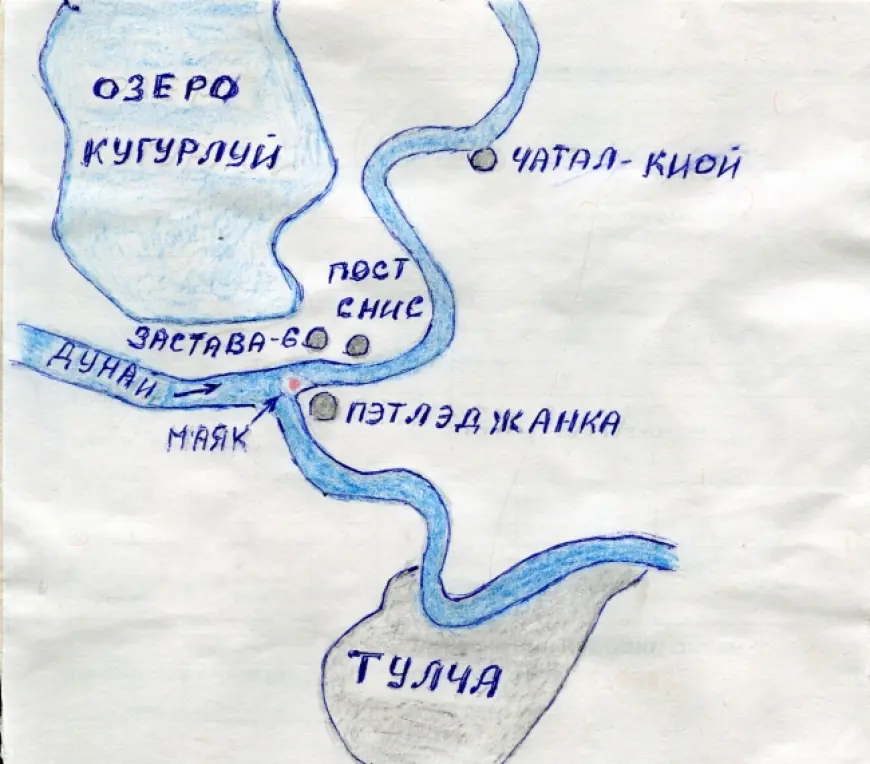 ОЗЕРО
КУГУРЛУЙ
ЧАТАЛ-КИОЙ
ПОСТ
СНИС
ЗАСТАВА-6
ДУНАЙ
МАЯК
ПЭТЛЭДЖАНКА
ТУЛЧА